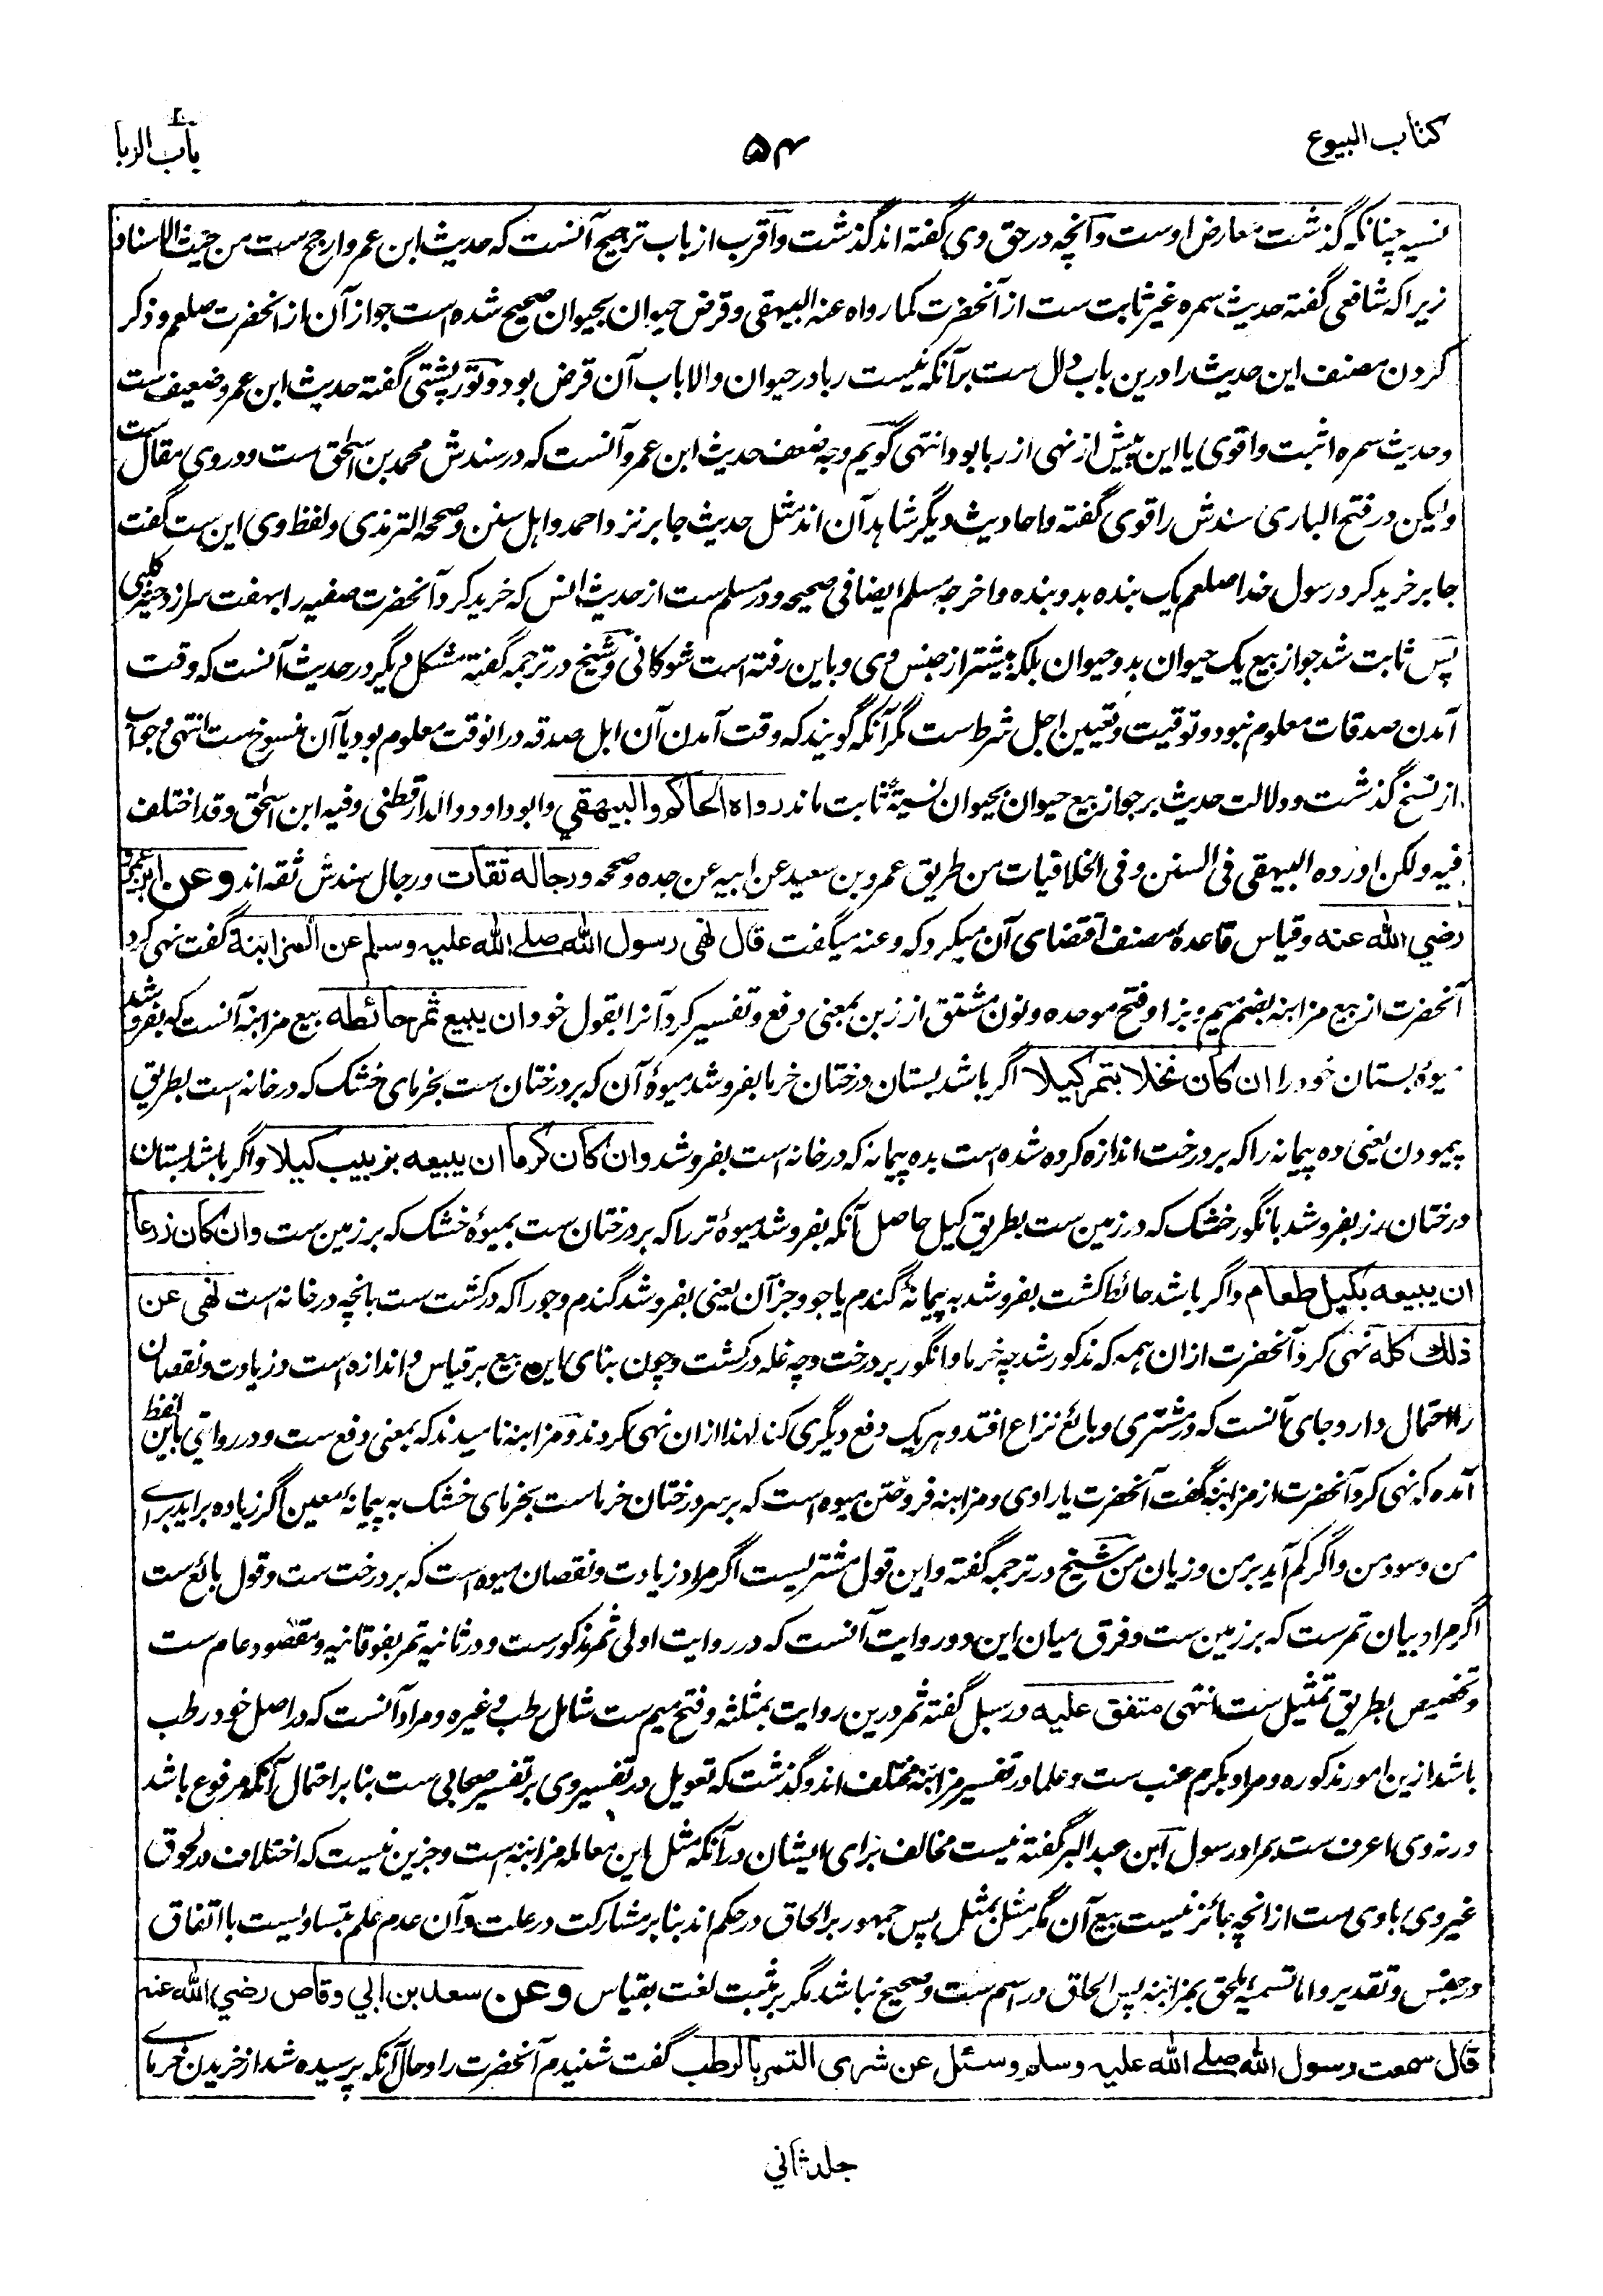 كتاب البيوع
۵۴
باب الربا
نسیہ چنانکہ گذشت معارض اوست و آنچه در حق وی گفته اند گذشت و اقرب از باب ترجیح آنست که حدیث ابن عمرو ارجح ست من حیث الاسناد
زیرا که شافعی گفته حدیث سمره غیر ثابت ست از آنحضرت کما رواه عنه البیهقی و قرض حیوان بحیوان صحیح شده است جواز آن از آنحضرت صلعم و ذکر
کردن مصنف این حدیث را درین باب دال ست بر آنکه نیست ربا در حیوان و الا باب آن قرض بود و تورپشتی گفته حدیث ابن عمرو ضعیف ست
و حدیث سمره اثبت و اقوی یا این پیش از نهی از ربا بود انتهی گویم وجه ضعف حدیث ابن عمرو آنست که در سندش محمد بن اسحق ست و در وی مقال ست
ولیکن در فتح الباری سندش را قوی گفته و احادیث دیگر شاهد آن اند مثل حدیث جابر نزد احمد و اهل سنن و صححه الترمذی و لفظ وی این ست گفت
جابر خرید کرد رسول خدا صلعم یک بنده بدو بنده و اخرجه مسلم ایضا فی صحیحه و در مسلم ست از حدیث انس که خرید کرد آنحضرت صفیه را بهفت سر از دحیه کلبی
پس ثابت شد جواز بیع یک حیوان بدو حیوان بلکه بیشتر از جنس وی و باین رفته است شوکانی و شیخ در ترجمه گفته مشکل دیگر در حدیث آنست که وقت
آمدن صدقات معلوم نبود و توقیت و تعیین اجل شرط ست مگر آنکه گویند که وقت آمدن آن ابل صدقه در انوقت معلوم بود یا آن منسوخ ست انتهی و جواب
از نسخ گذشت و دلالت حدیث بر جواز بیع حیوان بحیوان نسیئة ثابت ماند رواه الحاكم والبيهقي وابوداود والدارقطنی وفیه ابن اسحق وقد اختلف
فیه ولکن اورده البیهقی فی السنن وفی الخلافیات من طریق عمرو بن سعید عن ابیه عن جده وصححه ورجاله ثقات ورجال سندش ثقه اند وعن ابن عمر
رضي الله عنه وقیاس قاعدهٔ مصنف اقتضای آن میکرد که وعنه میگفت قال نهى رسول الله صلے الله علیہ وسلم عن المزابنة گفت نهی کرد
آنحضرت از بیع مزابنه بضم میم و بزا و فتح موحده و نون مشتق از زبن بمعنی دفع و تفسیر کرد آنرا بقول خود ان يبيع ثمر حائطه بیع مزابنه آنست که بفروشد
میوهٔ بستان خود را ان كان نخلا بتمر كيلا اگر باشد بستان درختان خرما بفروشد میوهٔ آن که بر درختان ست بخرمای خشک که در خانه است بطریق
پیمودن یعنی ده پیمانه را که بر درخت اندازه کرده شده است بده پیمانه که در خانه است بفروشد وان كان كرما ان يبيعه بزبيب كيلا واگر باشد بستان
درختان رز بفروشد بانگور خشک که در زمین ست بطریق کیل حاصل آنکه بفروشد میوهٔ تر را که بر درختان ست بمیوهٔ خشک که بر زمین ست وان كان زرعا
ان يبيعه بكيل طعام و اگر باشد حائط کشت بفروشد به پیمانهٔ گندم یا جو و جز آن یعنی بفروشد گندم و جو را که در کشت ست بانچه در خانه است نهى عن
ذلك كله نهی کرد آنحضرت ازان همه که مذکور شد چه خرما و انگور بر درخت و چه غله در کشت و چون بنای این بیع بر قیاس و اندازه است و زیادت و نقصان
را احتمال دارد و جای آنست که در مشتری و بائع نزاع افتد و هر یک دفع دیگری کند لهذا ازان نهی کردند و مزابنه نامیدند که بمعنی دفع ست و در روایتی باین لفظ
آمده که نهی کرد آنحضرت از مزابنه گفت آنحضرت یا راوی و مزابنه فروختن میوه است که بر سر درختان خرماست بخرمای خشک به پیمانهٔ معین اگر زیاده برآید برای
من و سود من و اگر کم آید بر من و زیان من شیخ در ترجمه گفته و این قول مشتریست اگر مراد زیادت و نقصان میوه است که بر درخت ست و قول بائع ست
اگر مراد بیان تمرست که بر زمین ست و فرق میان این دو روایت آنست که در روایت اولی ثمر مذکورست و در ثانیه تمر بفوقانیه و مقصود عام ست
و تخصیص بطریق تمثیل ست انتهی متفق عليه در سبل گفته ثمر درین روایت بمثلثه و فتح میم ست شامل رطب و غیره و مراد آنست که در اصل خود رطب
باشد ازین امور مذکوره و مراد بکرم عنب ست و علما در تفسیر مزابنه مختلف اند و گذشت که تعویل در تفسیر وی بر تفسیر صحابی ست بنا بر احتمال آنکه مرفوع باشد
ورنه وی اعرف ست بمراد رسول ابن عبدالبر گفته نیست مخالف برای ایشان در آنکه مثل این معامله مزابنه است و جزین نیست که اختلاف در لحوق
غیر وی باوی ست از انچه جائز نیست بیع آن مگر مثل بمثل پس جمهور بر الحاق در حکم اند بنا بر مشارکت در علت و آن عدم علم بتساویست با اتفاق
در جنس و تقدیر و اما تسمیهٔ ملحق بمزابنه پس الحاق در اسم ست و صحیح نباشد مگر بر مثبت لغت بقیاس وعن سعد بن ابي وقاص رضي الله عنه
قال سمعت رسول الله صلے الله علیہ وسلم وسئل عن شرى التمر بالرطب گفت شنیدم آنحضرت را و حال آنکه پرسیده شد از خریدن خرمای
جلد ثاني